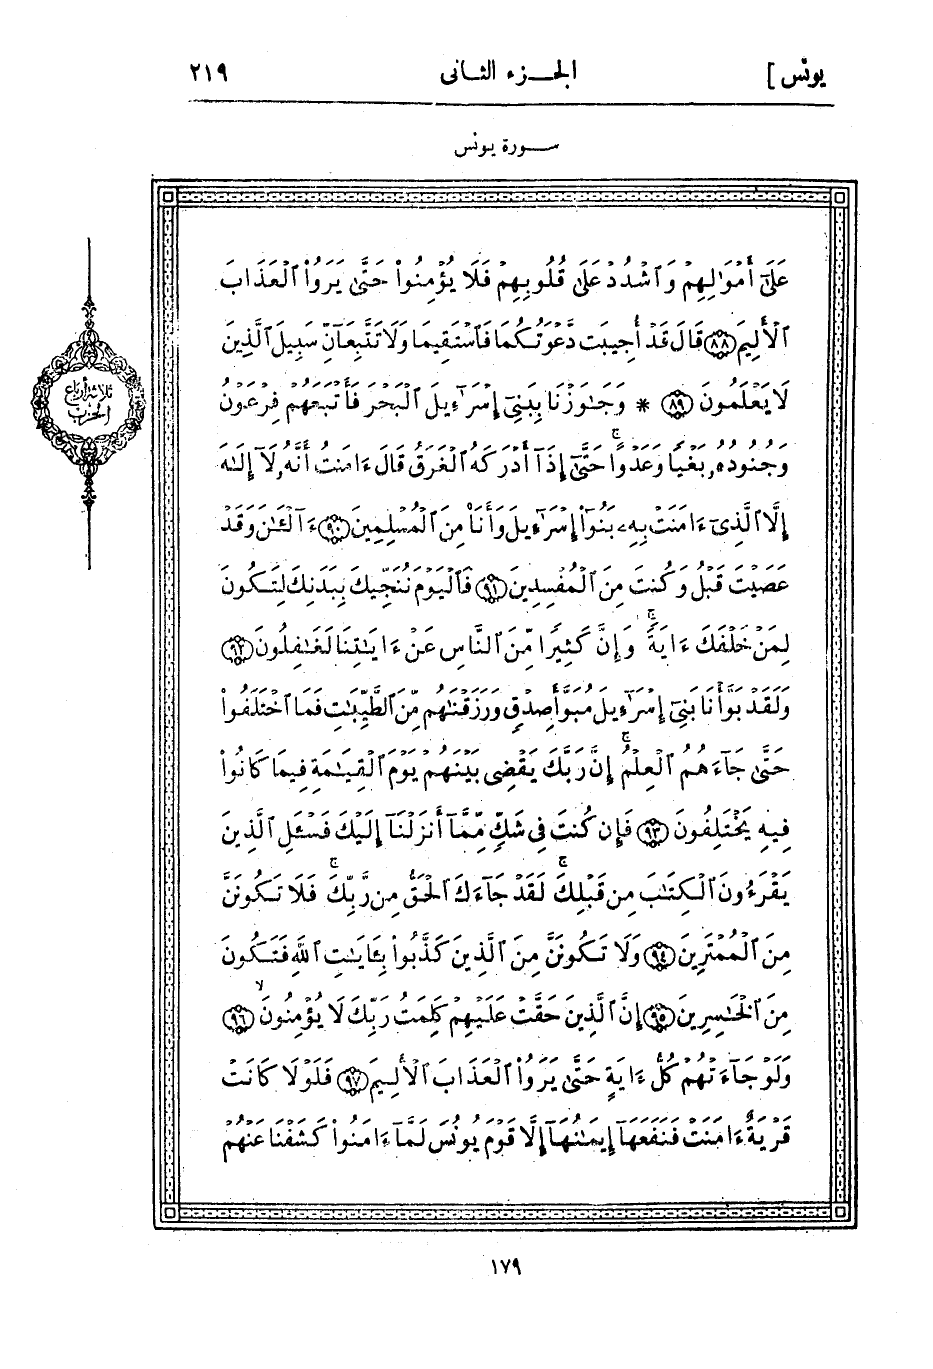 يونس ]
الجـــزء الثـانى
٢١٩
ســـورة يونس
عَلَىٰٓ أَمْوَٰلِهِمْ وَٱشْدُدْ عَلَىٰ قُلُوبِهِمْ فَلَا يُؤْمِنُوا۟ حَتَّىٰ يَرَوُا۟ ٱلْعَذَابَ
ٱلْأَلِيمَ ٨٨ قَالَ قَدْ أُجِيبَت دَّعْوَتُكُمَا فَٱسْتَقِيمَا وَلَا تَتَّبِعَآنِّ سَبِيلَ ٱلَّذِينَ
لَا يَعْلَمُونَ ٨٩ * وَجَٰوَزْنَا بِبَنِىٓ إِسْرَٰٓءِيلَ ٱلْبَحْرَ فَأَتْبَعَهُمْ فِرْعَوْنُ
وَجُنُودُهُۥ بَغْيًا وَعَدْوًا ۚ حَتَّىٰٓ إِذَآ أَدْرَكَهُ ٱلْغَرَقُ قَالَ ءَامَنتُ أَنَّهُۥ لَآ إِلَٰهَ
إِلَّا ٱلَّذِىٓ ءَامَنَتْ بِهِۦ بَنُوٓا۟ إِسْرَٰٓءِيلَ وَأَنَا۠ مِنَ ٱلْمُسْلِمِينَ ٩٠ ءَآلْـَٰٔنَ وَقَدْ
عَصَيْتَ قَبْلُ وَكُنتَ مِنَ ٱلْمُفْسِدِينَ ٩١ فَٱلْيَوْمَ نُنَجِّيكَ بِبَدَنِكَ لِتَكُونَ
لِمَنْ خَلْفَكَ ءَايَةً ۚ وَإِنَّ كَثِيرًا مِّنَ ٱلنَّاسِ عَنْ ءَايَٰتِنَا لَغَٰفِلُونَ ٩٢
وَلَقَدْ بَوَّأْنَا بَنِىٓ إِسْرَٰٓءِيلَ مُبَوَّأَ صِدْقٍ وَرَزَقْنَٰهُم مِّنَ ٱلطَّيِّبَٰتِ فَمَا ٱخْتَلَفُوا۟
حَتَّىٰ جَآءَهُمُ ٱلْعِلْمُ ۚ إِنَّ رَبَّكَ يَقْضِى بَيْنَهُمْ يَوْمَ ٱلْقِيَٰمَةِ فِيمَا كَانُوا۟
فِيهِ يَخْتَلِفُونَ ٩٣ فَإِن كُنتَ فِى شَكٍّ مِّمَّآ أَنزَلْنَآ إِلَيْكَ فَسْـَٔلِ ٱلَّذِينَ
يَقْرَءُونَ ٱلْكِتَٰبَ مِن قَبْلِكَ ۚ لَقَدْ جَآءَكَ ٱلْحَقُّ مِن رَّبِّكَ ۚ فَلَا تَكُونَنَّ
مِنَ ٱلْمُمْتَرِينَ ٩٤ وَلَا تَكُونَنَّ مِنَ ٱلَّذِينَ كَذَّبُوا۟ بِـَٔايَٰتِ ٱللَّهِ فَتَكُونَ
مِنَ ٱلْخَٰسِرِينَ ٩٥ إِنَّ ٱلَّذِينَ حَقَّتْ عَلَيْهِمْ كَلِمَتُ رَبِّكَ لَا يُؤْمِنُونَ ۙ ٩٦
وَلَوْ جَآءَتْهُمْ كُلُّ ءَايَةٍ حَتَّىٰ يَرَوُا۟ ٱلْعَذَابَ ٱلْأَلِيمَ ٩٧ فَلَوْلَا كَانَتْ
قَرْيَةٌ ءَامَنَتْ فَنَفَعَهَآ إِيمَٰنُهَآ إِلَّا قَوْمَ يُونُسَ لَمَّآ ءَامَنُوا۟ كَشَفْنَا عَنْهُمْ
ثلاثة أرباع
الحزب
١٧٩